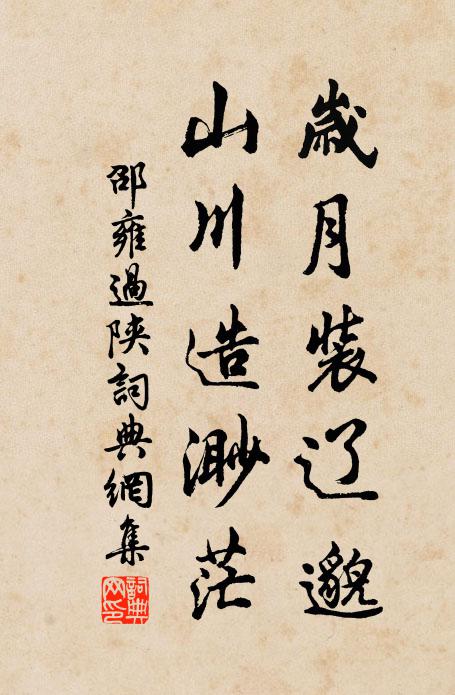 歲月裝辽邈
山川造渺茫
邵雍過陝詞典網集
詞典网印